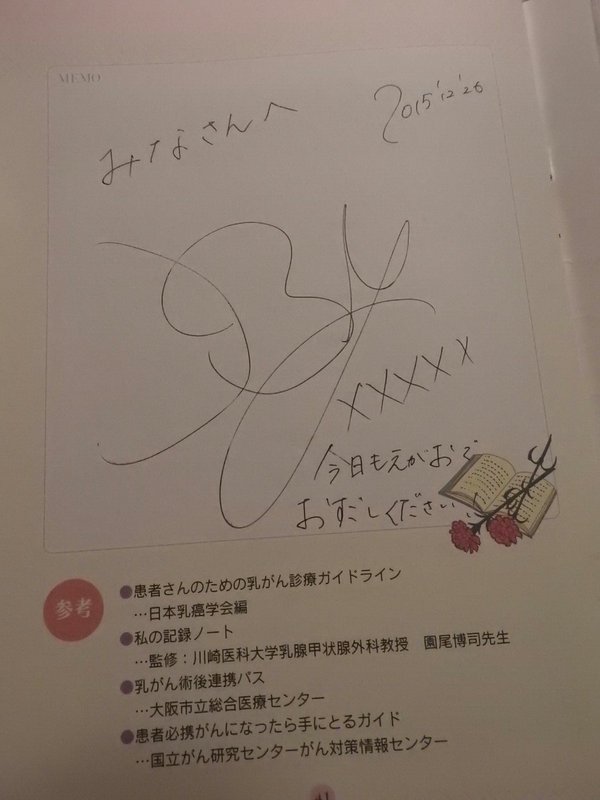 MEMO
みなさんへ
2015'12'26
XXXXX
今日もえがおで
おすごしください!!
参考
●患者さんのための乳がん診療ガイドライン
…日本乳癌学会編
●私の記録ノート
…監修：川崎医科大学乳腺甲状腺外科教授　園尾博司先生
●乳がん術後連携パス
…大阪市立総合医療センター
●患者必携がんになったら手にとるガイド
…国立がん研究センターがん対策情報センター
41